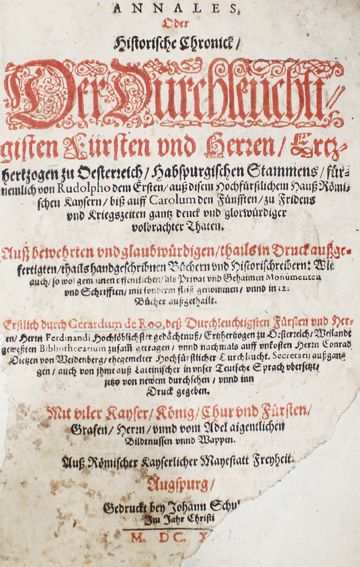 ANNALES,
Oder
Historische Chronick/
Der Durchleuchti
gisten Fürsten vnd Herren/ Ertz-
hertzogen zu Oesterreich/ Habspurgischen Stammens/ für-
nemlich von Rudolpho dem Ersten/ auß disem Hochfürstlichem Hauß Römi-
schen Kaysern/ biß auff Carolum den Fünfften/ zu Fridens
vnd Kriegszeiten gantz denck vnd glorwürdiger
volbrachter Thaten.
Auß bewehrten vnd glaubwürdigen/ thails in Druck außge-
fertigten/ thails handgeschribnen Büchern vnd Historischreibern: Wie
auch/ so wol gemainen offentlichen/ als Privat vnd Gehaimen Monumenten
vnd Schrifften/ mit sonderm fleiß genommen/ vnnd in 12.
Bücher außgethailt.
Erstlich durch Gerardum de Roo, deß Durchleuchtigsten Fürsten vnd Her-
ren/ Herrn Ferdinandi Hochlöblichster gedächtnuß/ Ertzhertzogen zu Oesterreich/ Weilandt
gewesten Bibliothecarium zusam getragen/ vnnd nachmals auff vnkosten Herrn Conrad
Dietzen von Weidenberg/ ehegemelter Hochfürstlicher Durchleucht. Secretarij außgang-
gen/ auch von jhme auß Lateinischer in vnser Teutsche Sprach vbersetzt/
jetzo von newem durchsehen/ vnnd inn
Druck gegeben.
Mit viler Kayser/ König/ Chur vnd Fürsten/
Grafen/ Herrn/ vnnd vom Adel aigentlichen
Bildnussen vnnd Wappen.
Auß Römischer Kayserlicher Mayestatt Freyheit.
Augspurg/
Gedruckt bey Johann Schul
Im Jahr Christi
M. DC. XXI.